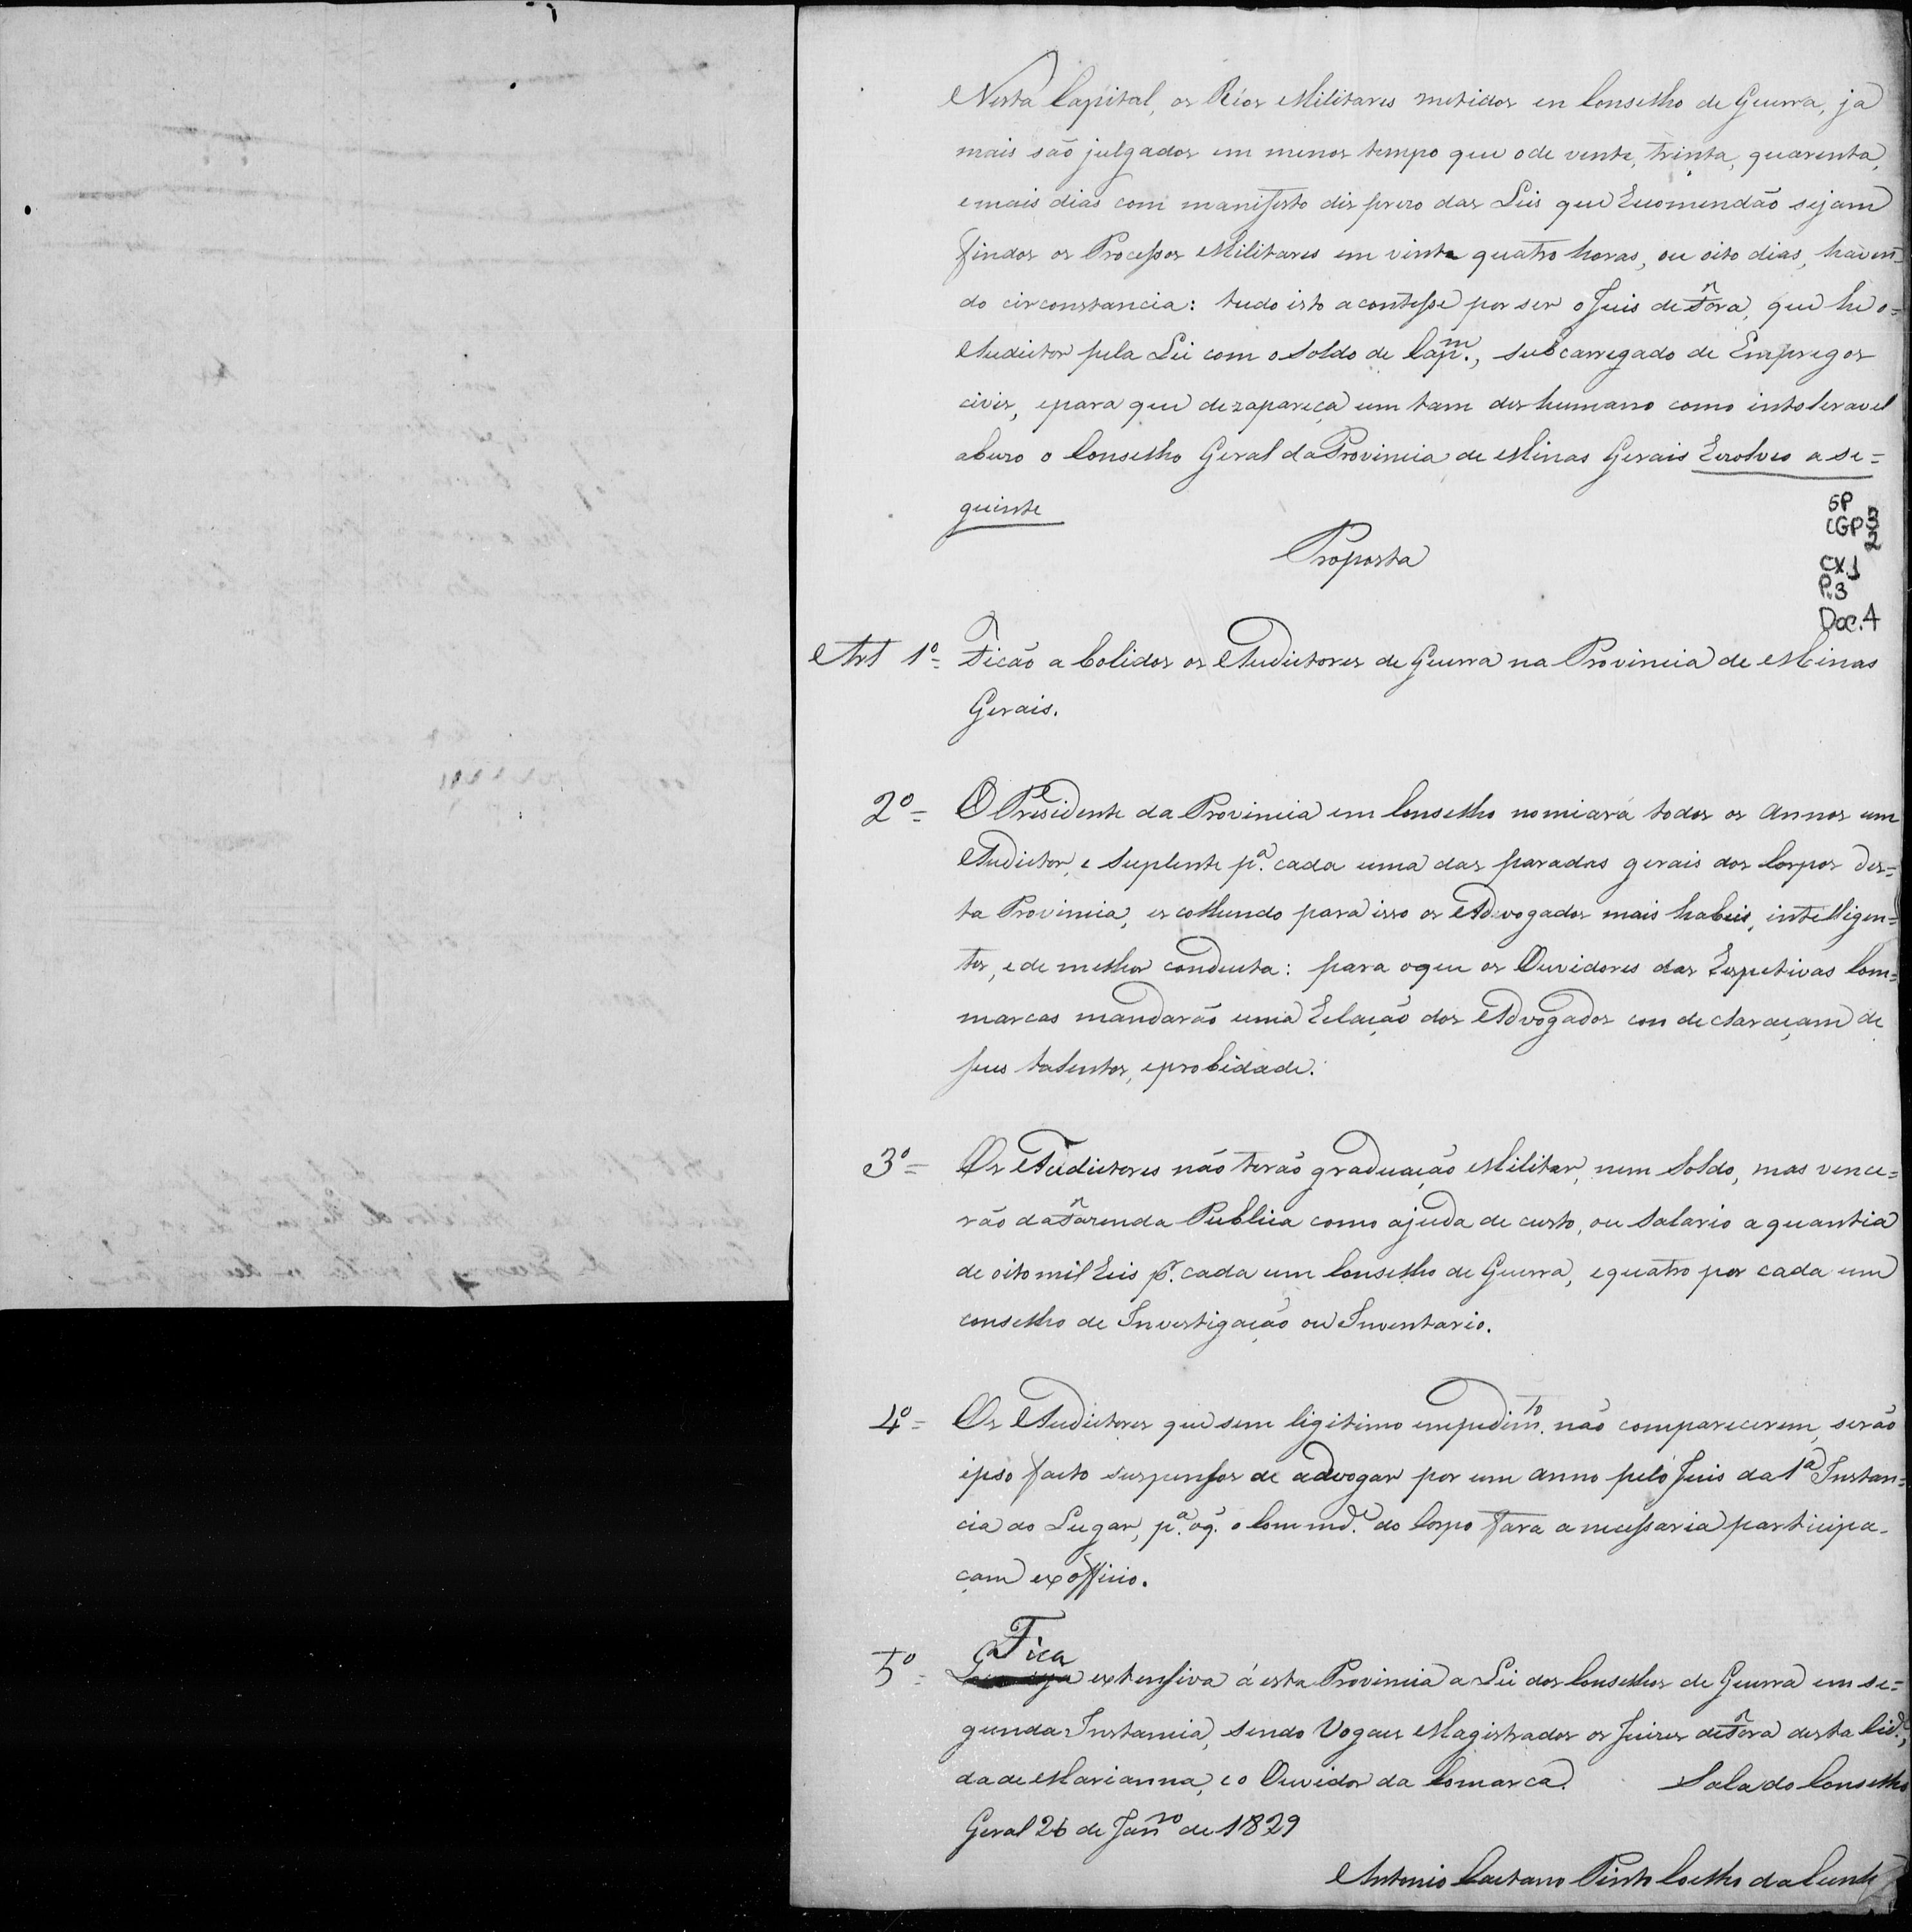 Nesta Capital, os Réos Militares metidos en Conselho de Guerra, ja
mais são julgados em menos tempo que o de vente, trinta, quarenta,
e mais dias com manifesto disprezo das Leis que Recomendão sejam
findos os Processos Militares em vinte quatro horas, ou oito dias, haven-
do circonstancia: tudo isto acontesse por ser o Juis de Fora, que he o=
Audictor pela Lei com o Soldo de Cap.m, subcarregado de Empregos
civis, e para que dezapareça um tam deshumano como intoleravel
abuzo o Conselho Geral da Provincia de Minas Gerais Rezolveo a se=
guinte
SP
CGP 3
2
CX.1
P.3
Doc.4
Proposta
Art 1º= Ficão abolidos os Audictores de Guerra na Provincia de Minas
Gerais.
2º= O Presidente da Provincia em Conselho nomiará todos os Annos um
Audictor, e Suplente p.a cada uma das paradas gerais dos Corpos des=
ta Provincia, escolhendo para isso os Advogados mais habeis, intelligen=
tes, e de melhor conducta: para oque os Ouvidores das Respetivas Com=
marcas mandarão uma Relação dos Advogados con declaraçam de
seus talentos, e probidade.
3º= Os Audictores não terão graduação Militar, nem Soldo, mas vence=
rão da Fazenda Publica como ajuda de custo, ou Salario a quantia
de oito mil Reis p.r cada um Conselho de Guerra, e quatro por cada um
conselho de Investigação ou Inventario.
4º= Os Audictores que sem ligitimo empedim.to não comparecerem, serão
ipso facto suspensos de advogar por um anno pelo Juis da 1ª Instan=
cia do Lugar, p.a oq. o Comm.de do Corpo fara a necessaria participa-
çam ex officio.
Fica
5º= extensiva á esta Provincia a Lei dos Conselhos de Guerra em se=
gunda Instancia, sendo Vogaes Magistrados os Juizes de Fora desta Cid.e,
da de Marianna, e o Ouvidor da Comarca. Sala do Conselho
Geral 26 de Jan.ro de 1829
Antonio Caetano Pinto Coelho da Cunha